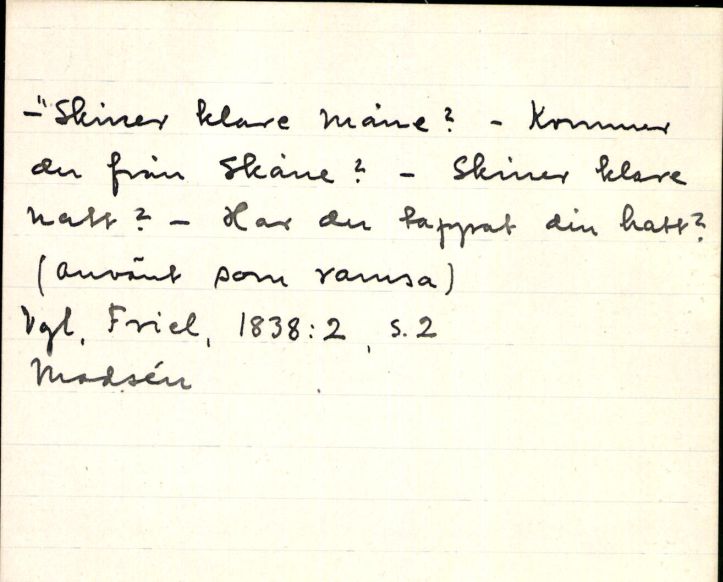 –"Skiner klare måne? – Kommer
du från Skåne? – Skiner klare
natt? – Har du tappat din hatt?
(använt som ramsa)
Vgl, Friel, 1838:2, s.2
Modsén